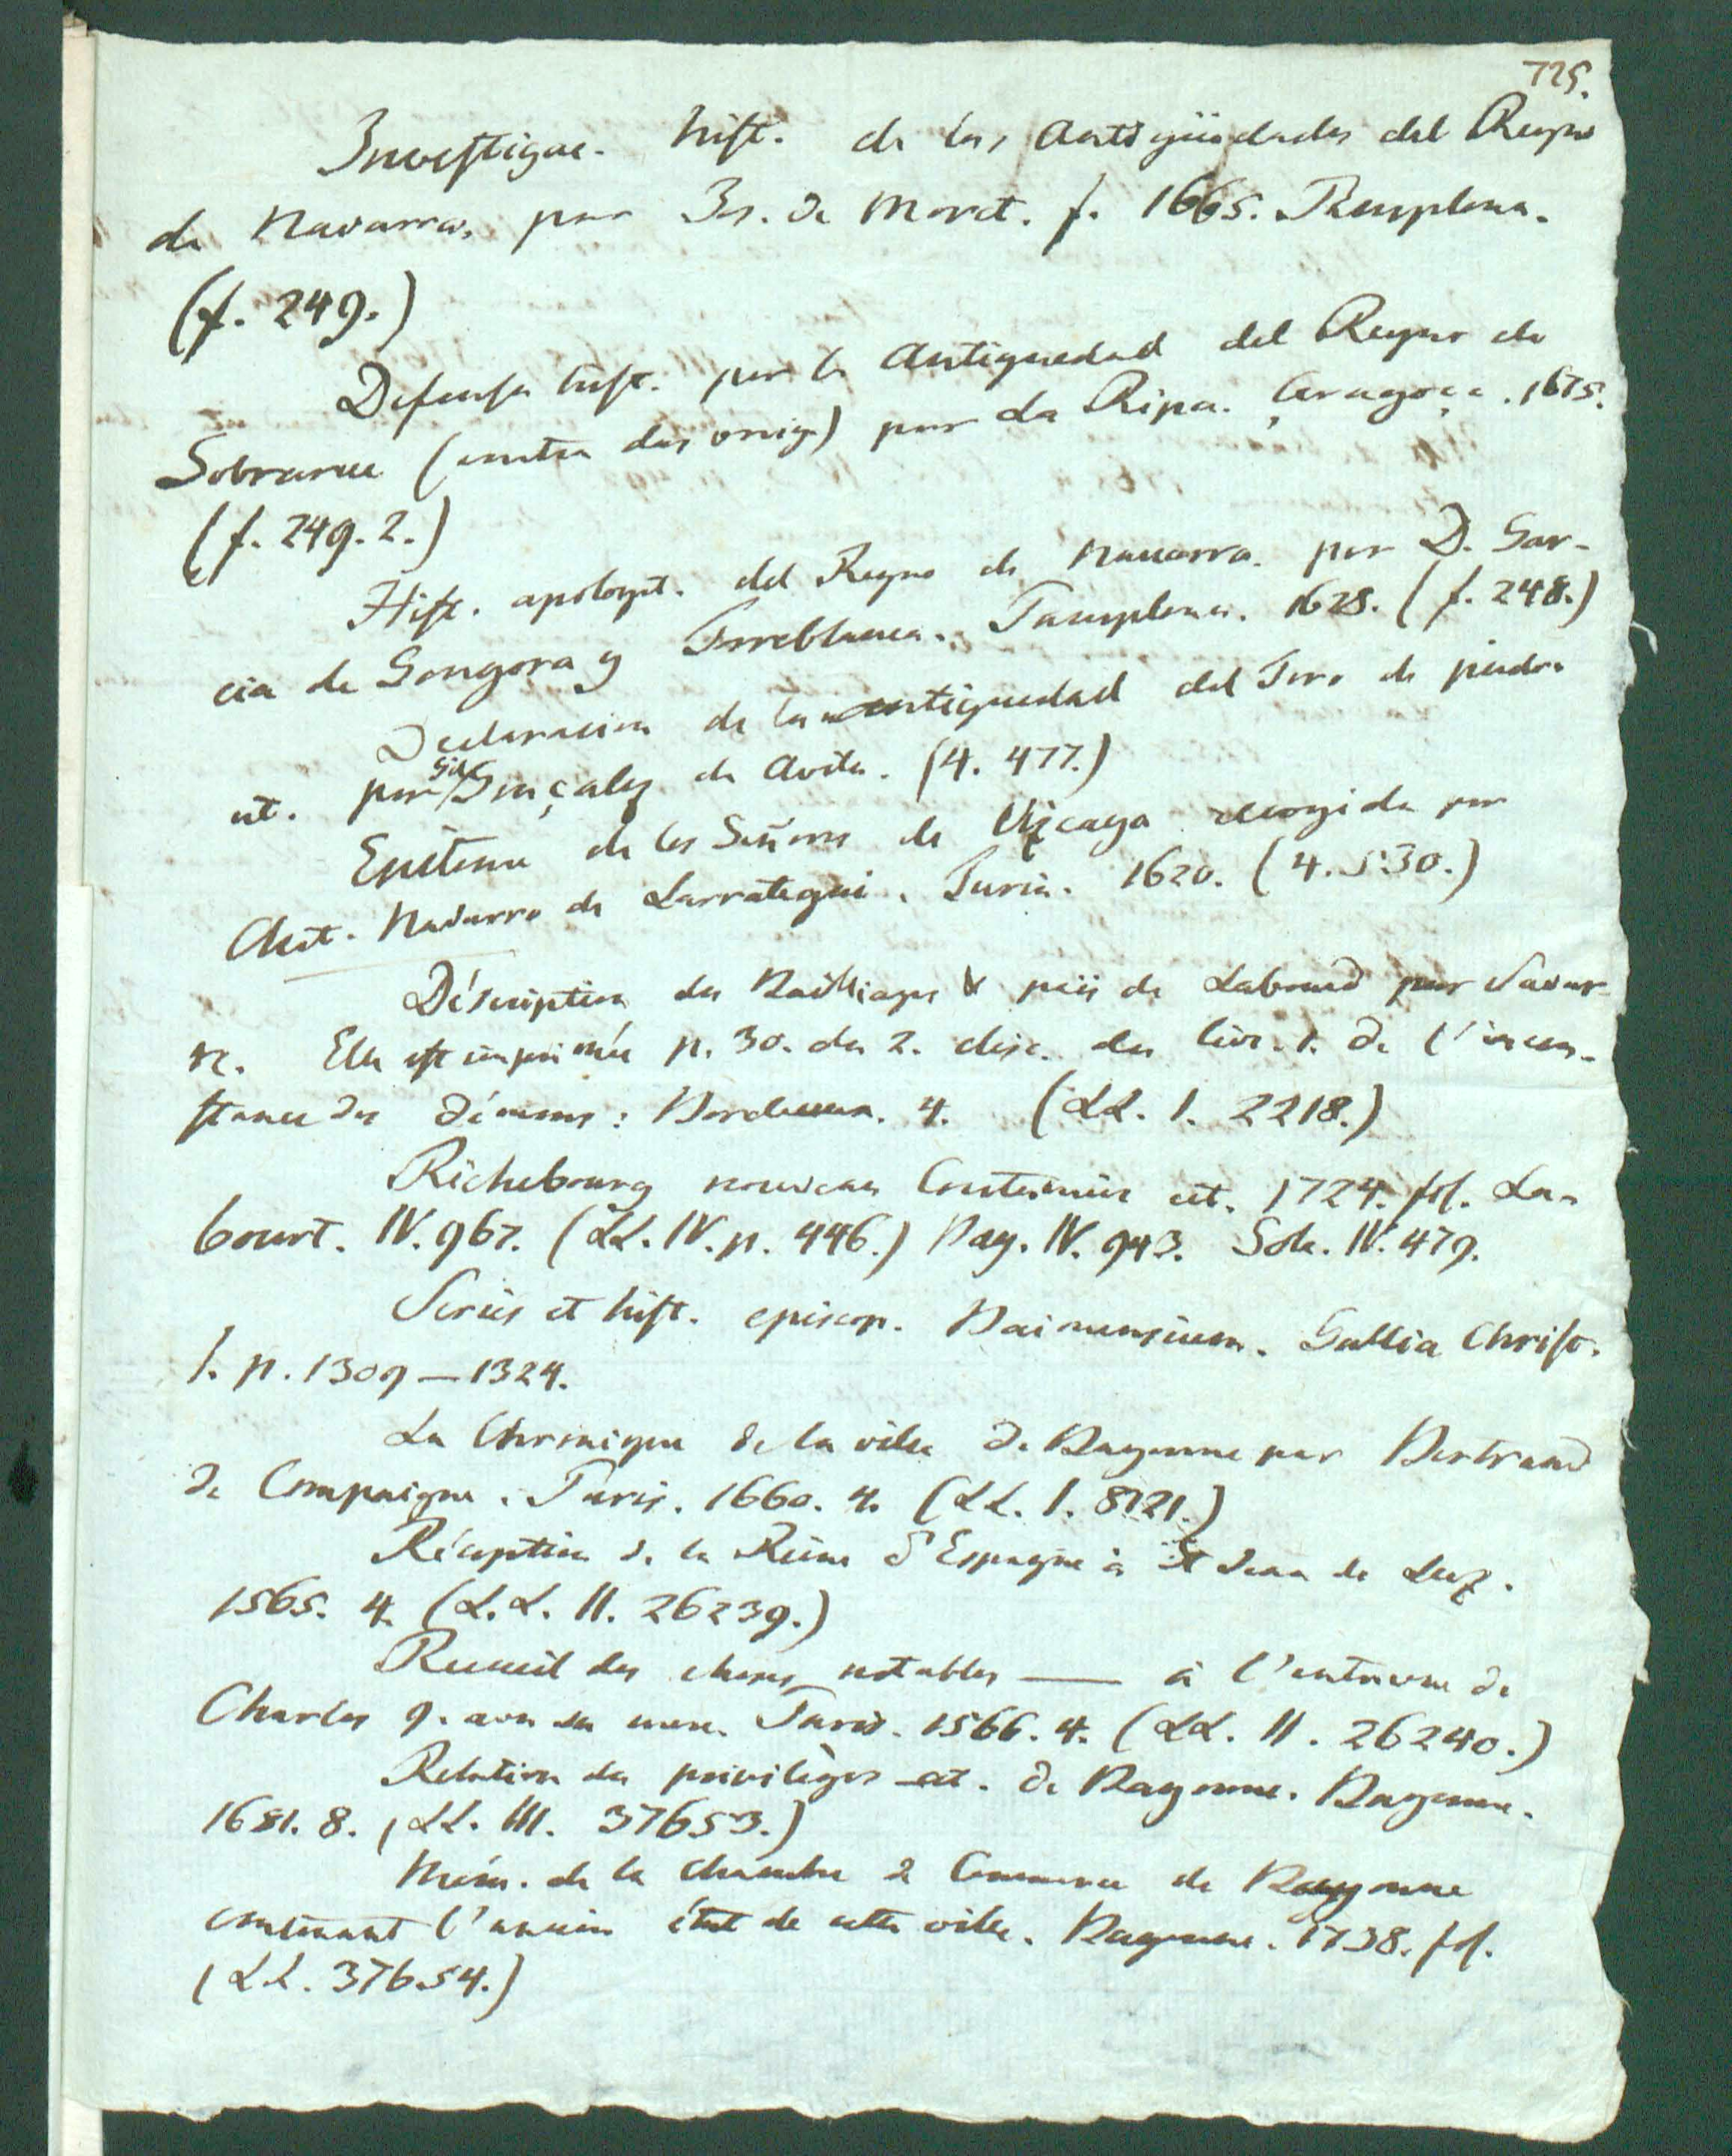 725.
Investigac. hist. de las Antigüedades del Reyno
de Navarra, por Jos. de Moret. f. 1665. Pamplona.
(f. 249.)
Defensa hist. por la Antiguedad del Reyno de
Sobrarve (contra das vorig) por La Ripa. Çaragoça. 1675.
(f. 249. 2.)
Hist. apologet. del Reyno de Nauarra. por D. Gar-
cia de Gongora y Torreblanca. Pamplona. 1628. (f. 248.)
Declaracion de la antiguedad del Toro de piedra
et. por Gil Gonçalez de Avila. (4. 477.)
Epitome de los Señores de Vizcaya recogida por
Ant. Navarro de Larrategui. Turin. 1620. (4. 530.)
Déscription du Bailliage & païs de Labourd par
Elle est imprimée p. 30. du 2. disc. du livr. 1. de l'incon-
stance des démons: Bordeaux. 4. (LL. 1. 2218.)
Richebourg nouveau Coutumier cet. 1724. fol. La-
bourt. IV. 967. (LL. IV. p. 446.) Bay. IV. 943. Sole. IV. 479.
Series et hist. episcop. Baionensium. Gallia Christ.
1. p. 1309 — 1324.
La Chronique de la ville de Bayonne par Bertrand
de Compaigne. Paris. 1660. 4. (LL. 1. 8121.)
Réception de la Reine d'Espagne à St Jean de Luz.
1565. 4. (L.L. II. 26239.)
Recueil des choses notables — à l'entrevue de
Charles 9. avec sa mere. Paris. 1566. 4. (LL. II. 26240.)
Relation des privilèges cet. de Bayonne. Bayonne.
1681. 8. (LL. III. 37653.)
Mém. de la chambre d Commerce de Bayonne
contenant l'ancien état de cette ville. Bayonne. 1738. fol.
(LL. 37654.)